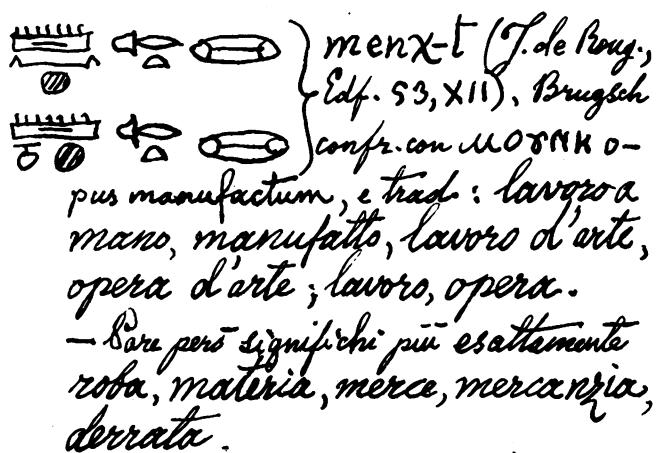 menχ-t (J. de Roug.,
Edf. 53, XII), Brugsch
confr. con ⲙⲟⲩⲛⲕ o-
pus manufactum, e trad.: lavoro a
mano, manufatto, lavoro d'arte,
opera d'arte; lavoro, opera.
— Pare però significhi più esattamente
roba, materia, merce, mercanzia,
derrata.